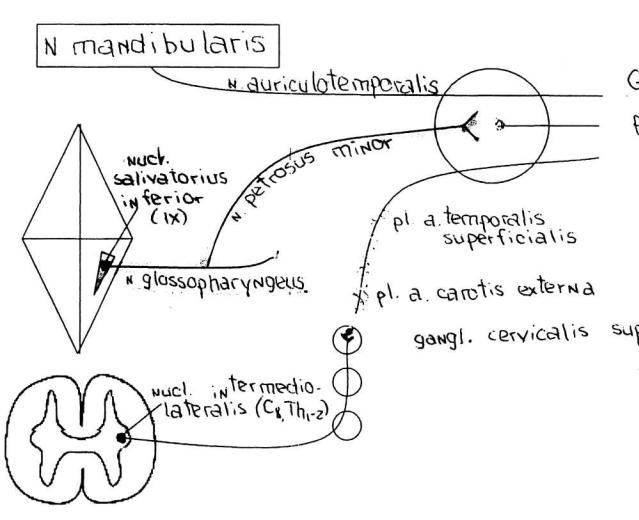 N mandibularis
N. auriculotemporalis
G
N. petrosus minor
Nucl.
salivatorius
inferior
(IX)
N. glossopharyngeus
pl. a. temporalis
superficialis
pl. a. carotis externa
gangl. cervicalis sup
Nucl. intermedio-
lateralis (C8, Th1-2)